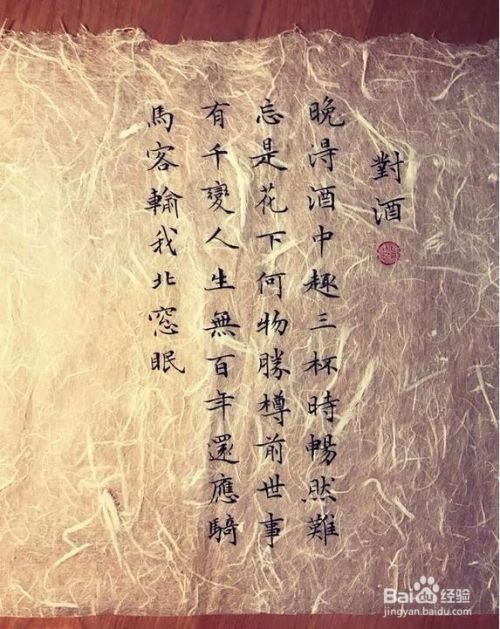 對酒
晚淂酒中趣三杯時暢然難
忘是花下何物勝樽前世事
有千變人生無百年還應騎
馬客輸我北窓眠
Baidu经验
jingyan.baidu.com